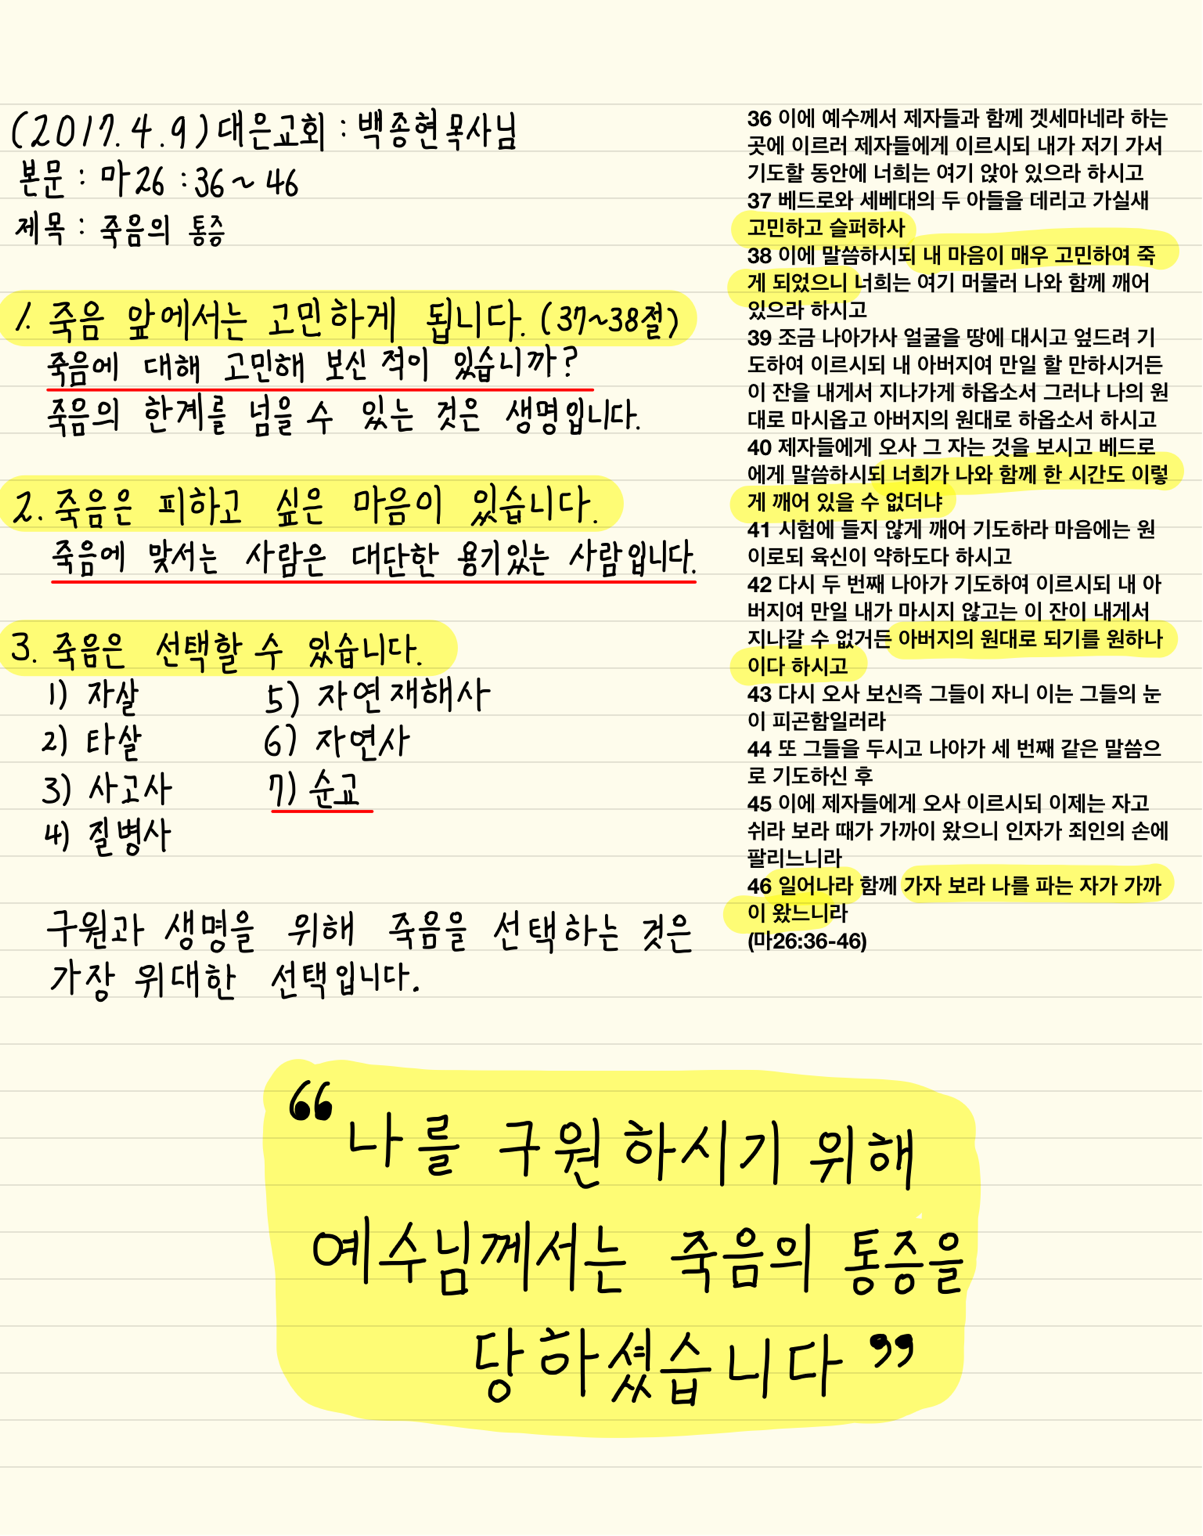 (2017.4.9) 대은교회 : 백종현목사님
본문 : 마26 : 36~46
제목 : 죽음의 통증
1. 죽음 앞에서는 고민하게 됩니다. (37~38절)
죽음에 대해 고민해 보신 적이 있습니까?
죽음의 한계를 넘을 수 있는 것은 생명입니다.
2. 죽음은 피하고 싶은 마음이 있습니다.
죽음에 맞서는 사람은 대단한 용기있는 사람입니다.
3. 죽음은 선택할 수 있습니다.
1) 자살
2) 타살
3) 사고사
4) 질병사
5) 자연재해사
6) 자연사
7) 순교
구원과 생명을 위해 죽음을 선택하는 것은
가장 위대한 선택입니다.
36 이에 예수께서 제자들과 함께 겟세마네라 하는
곳에 이르러 제자들에게 이르시되 내가 저기 가서
기도할 동안에 너희는 여기 앉아 있으라 하시고
37 베드로와 세베대의 두 아들을 데리고 가실새
고민하고 슬퍼하사
38 이에 말씀하시되 내 마음이 매우 고민하여 죽
게 되었으니 너희는 여기 머물러 나와 함께 깨어
있으라 하시고
39 조금 나아가사 얼굴을 땅에 대시고 엎드려 기
도하여 이르시되 내 아버지여 만일 할 만하시거든
이 잔을 내게서 지나가게 하옵소서 그러나 나의 원
대로 마시옵고 아버지의 원대로 하옵소서 하시고
40 제자들에게 오사 그 자는 것을 보시고 베드로
에게 말씀하시되 너희가 나와 함께 한 시간도 이렇
게 깨어 있을 수 없더냐
41 시험에 들지 않게 깨어 기도하라 마음에는 원
이로되 육신이 약하도다 하시고
42 다시 두 번째 나아가 기도하여 이르시되 내 아
버지여 만일 내가 마시지 않고는 이 잔이 내게서
지나갈 수 없거든 아버지의 원대로 되기를 원하나
이다 하시고
43 다시 오사 보신즉 그들이 자니 이는 그들의 눈
이 피곤함일러라
44 또 그들을 두시고 나아가 세 번째 같은 말씀으
로 기도하신 후
45 이에 제자들에게 오사 이르시되 이제는 자고
쉬라 보라 때가 가까이 왔으니 인자가 죄인의 손에
팔리느니라
46 일어나라 함께 가자 보라 나를 파는 자가 가까
이 왔느니라
(마26:36-46)
“나를 구원하시기 위해
예수님께서는 죽음의 통증을
당하셨습니다”